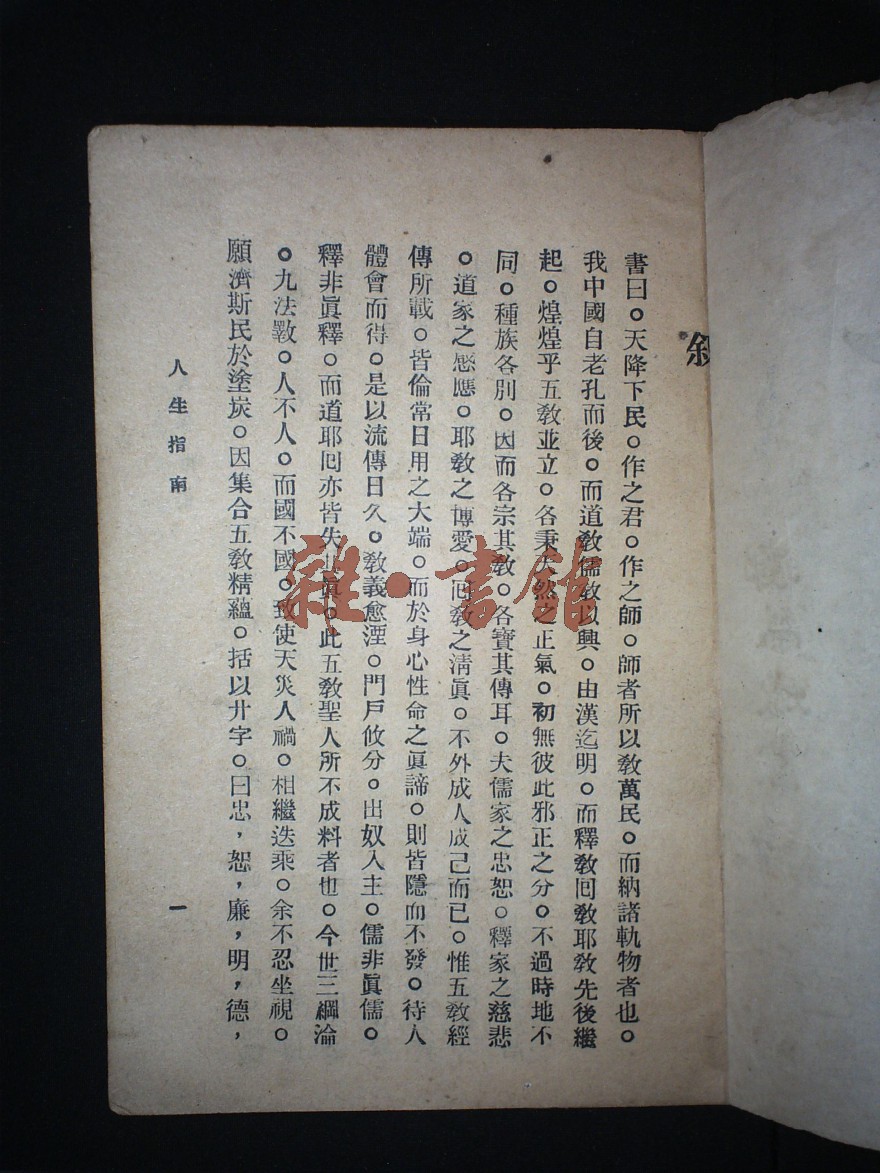 敍
書曰。天降下民。作之君。作之師。師者所以敎萬民。而納諸軌物者也。
我中國自老孔而後。而道敎儒敎以興。由漢迄明。而釋敎回敎耶敎先後繼
起。煌煌乎五敎並立。各秉天然之正氣。初無彼此邪正之分。不過時地不
同。種族各別。因而各宗其敎。各寶其傳耳。夫儒家之忠恕。釋家之慈悲
。道家之感應。耶敎之博愛。回敎之淸眞。不外成人成己而已。惟五敎經
傳所載。皆倫常日用之大端。而於身心性命之眞諦。則皆隱而不發。待人
體會而得。是以流傳日久。敎義愈湮。門戶攸分。出奴入主。儒非眞儒。
釋非眞釋。而道耶回亦皆失其眞。此五敎聖人所不成料者也。今世三綱淪
。九法斁。人不人。而國不國。致使天災人禍。相繼迭乘。余不忍坐視。
願濟斯民於塗炭。因集合五敎精蘊。括以廾字。曰忠，恕，廉，明，德，
人生指南
一
雜·書館